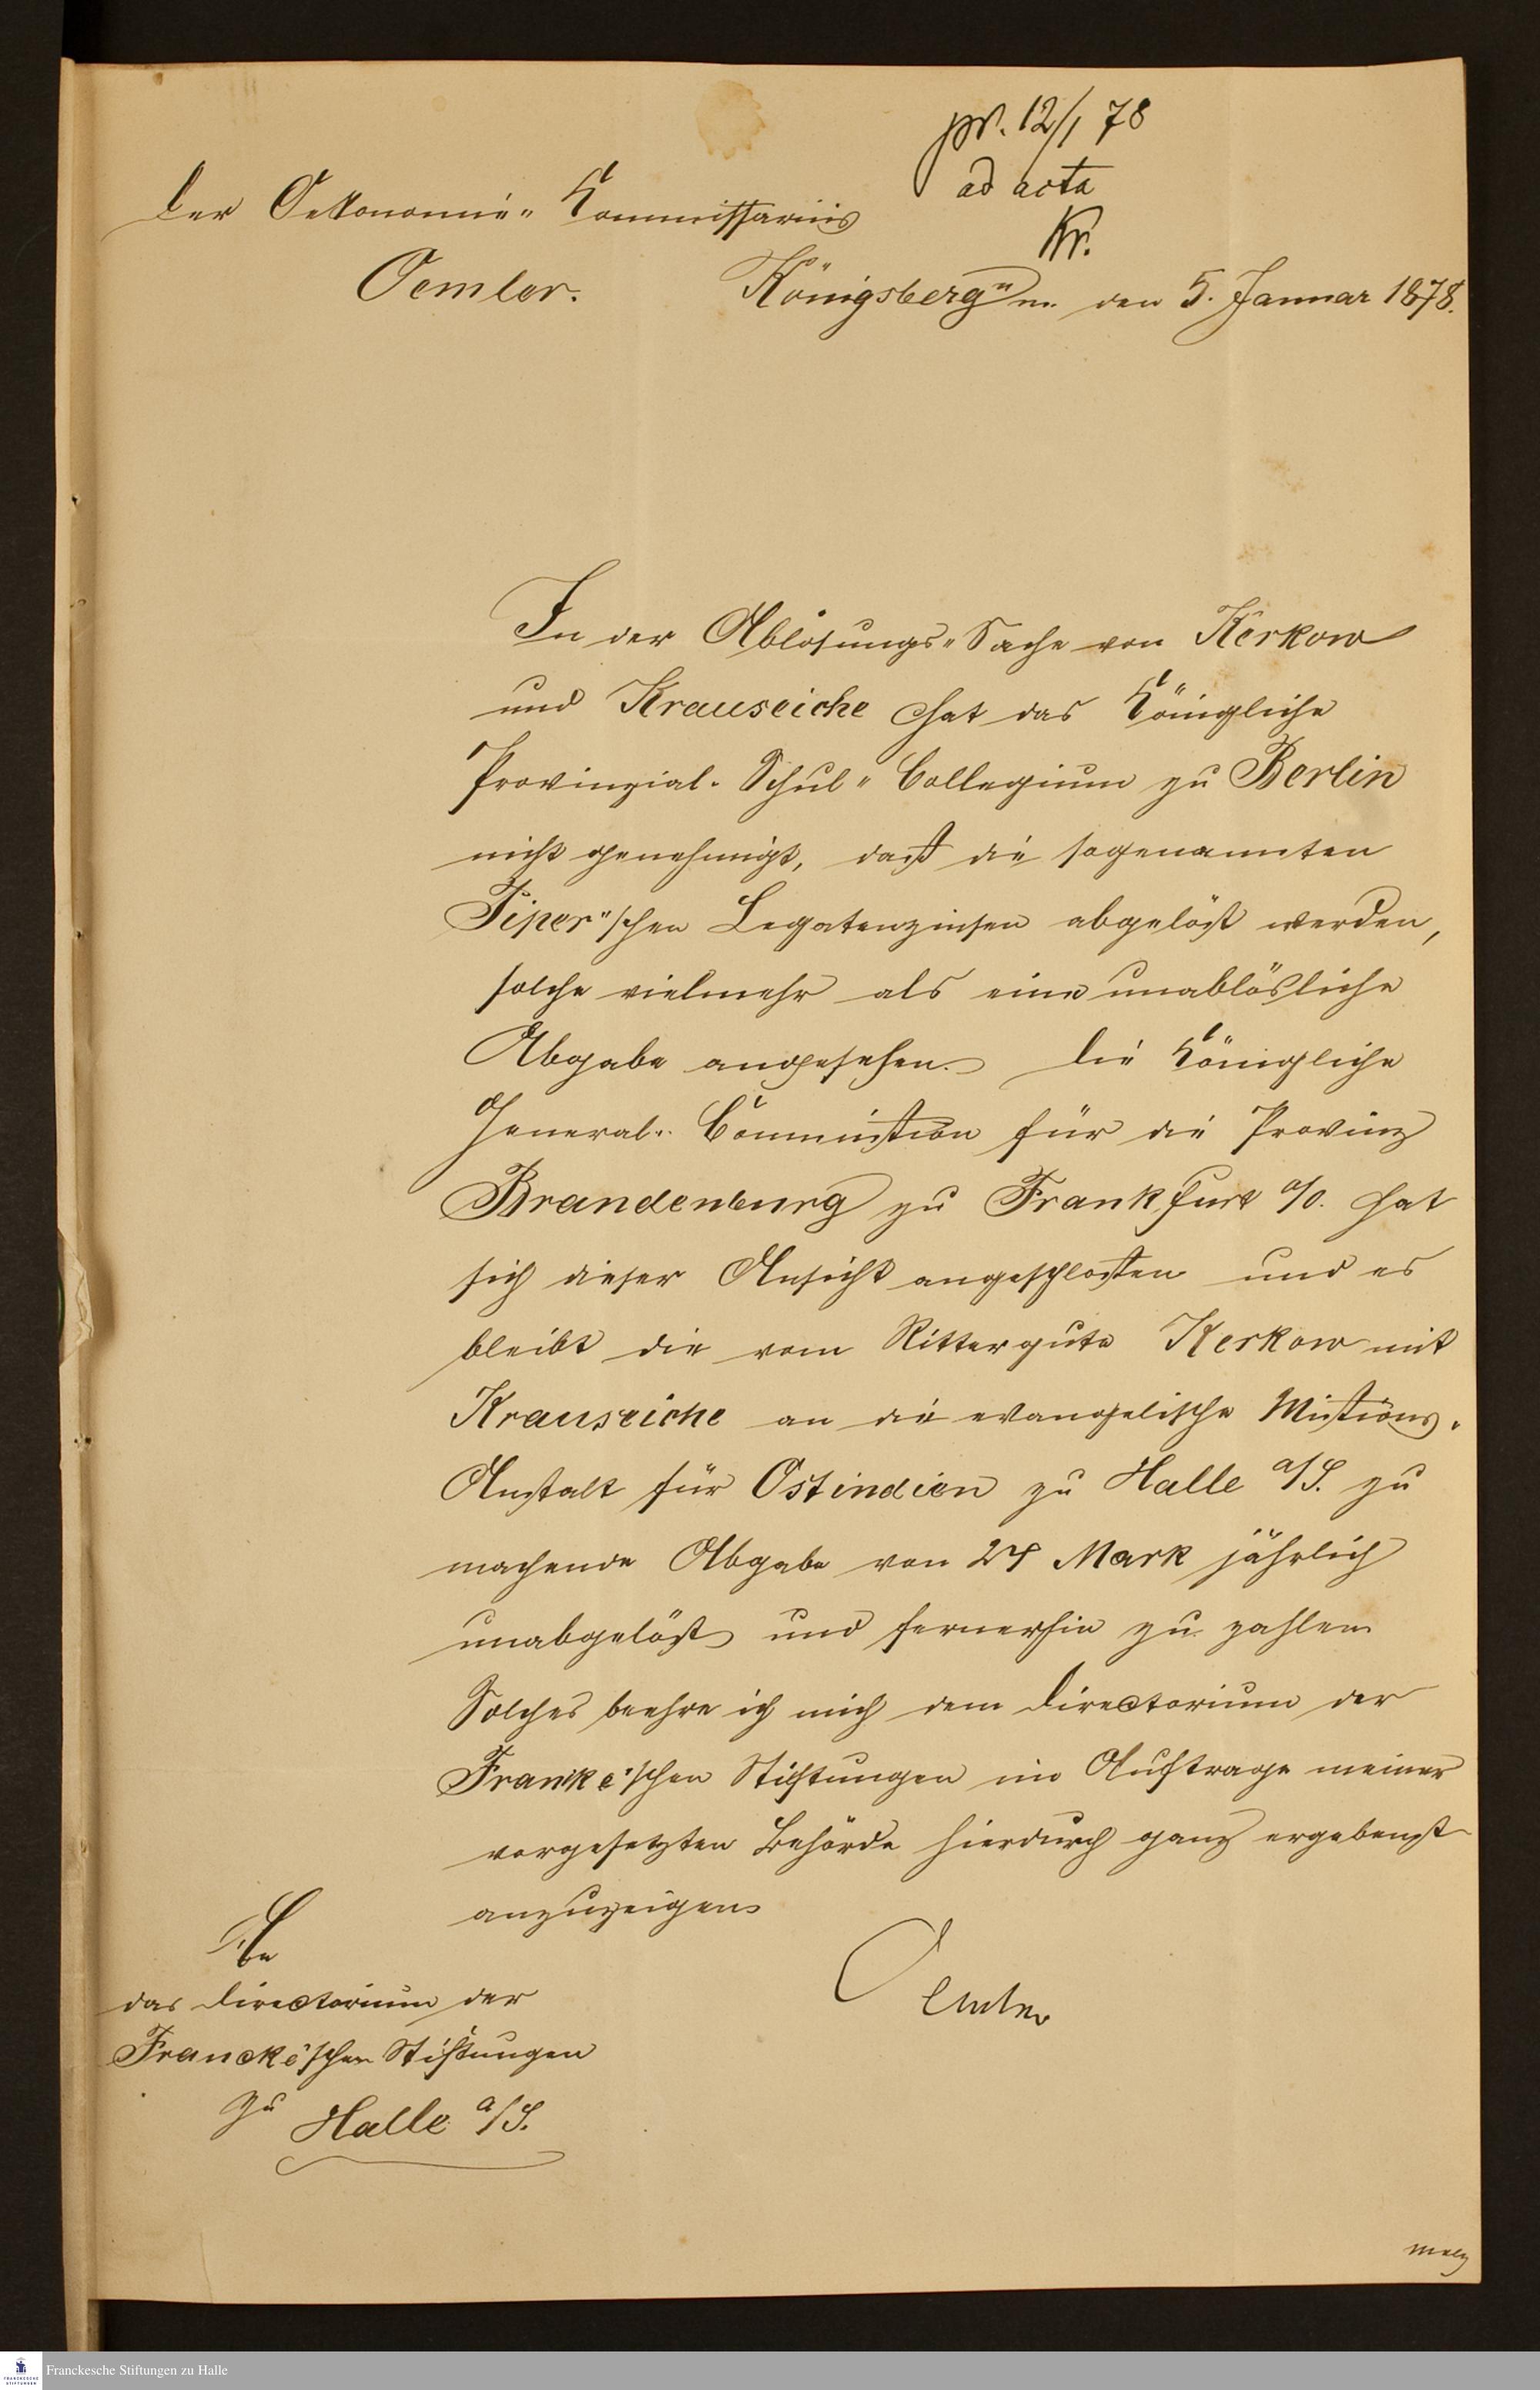 pr. 12/1 78
ad acta
Kr.
Der Oekonomie-Kommissarius
Oemler.
Königsberg n/m. den 5. Januar 1878.
In der Ablösungs-Sache von Kerkow
und Krauseiche hat das Königliche
Provinzial-Schul-Collegium zu Berlin
nicht genehmigt, daß die sogenannten
Piper'schen Legatenzinsen abgelöst werden,
solche vielmehr als eine unablösliche
Abgabe angesehen. Die Königliche
General-Commission für die Provinz
Brandenburg zu Frankfurt a/O. hat
sich dieser Ansicht angeschlossen und es
bleibt die vom Rittergute Kerkow mit
Krauseiche an die evangelische Missions-
Anstalt für Ostindien zu Halle a/S. zu
machende Abgabe von 24 Mark jährlich
unabgelöst und fernerhin zu zahlen.
Solches beehre ich mich dem Directorium der
Franke'schen Stiftungen im Auftrage meiner
vorgesetzten Behörde hierdurch ganz ergebenst
anzuzeigen.
Oemler
An
das Directorium der
Francke'schen Stiftungen
zu Halle a/S.
Franckesche Stiftungen zu Halle
FRANCKESCHE
STIFTUNGEN